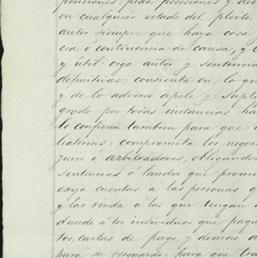 posiciones pida posesiones y des
en cualquier estado del pleito
autos siempre que haya cosa
cia o continencia de causa, y l
y util: oiga autos y sentencia
definitivas: consienta en lo qu
y de lo adverso apele y suplu
grado por todas instancias ha
lo confieren tambien para que
liatorios: comprometa los negoc
juro o arbitradores, obligando
sentencias ó laudos que pronun
exija cuentas á las personas q
y las renda á las que tengan d
dando á los individuos que pagu
tos, cartas de pago, y demas a
para su resguardo: para que tra